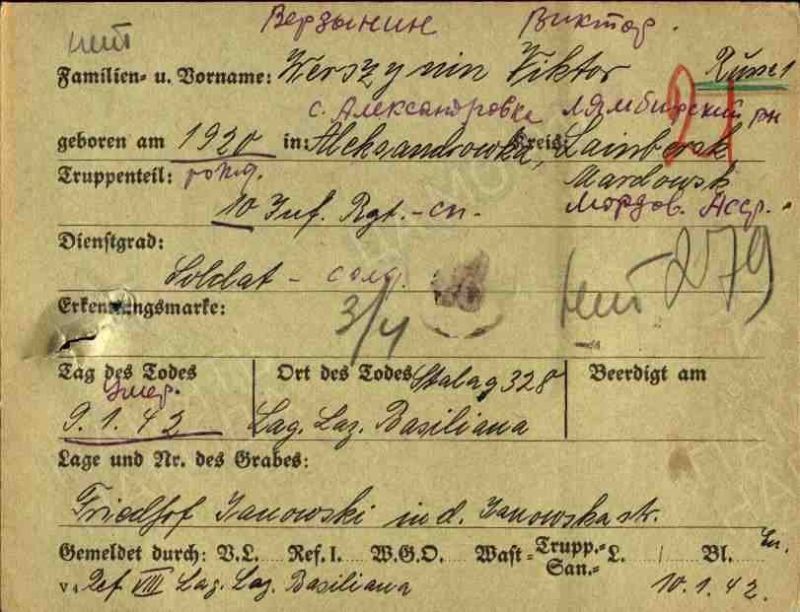 Верзынин Виктор.
нет
Familien- u. Vorname: Werszynin Viktor
с. Александровка Лямбирский рн
geboren am 1920 in: Aleksandrowka, Kreis: Lainbersk
Truppenteil: рожд. Mardowsk
10 Inf. Rgt. - сп. Мордов. Асср.
Dienstgrad:
Soldat - солд. нет 279
Erkennungsmarke: 3/4
Tag des Todes Ort des Todes Stalag 328 Beerdigt am
Умер.
9.1.42 Lag. Laz. Basiliana
Lage und Nr. des Grabes:
Friedhof Janowski in d. Janowska str.
Gemeldet durch: V.L. Ref. I. W.G.O. Wast- Trupp.- San.- L. / Bl.
Ref VIII Lag. Laz. Basiliana 10.1.42.